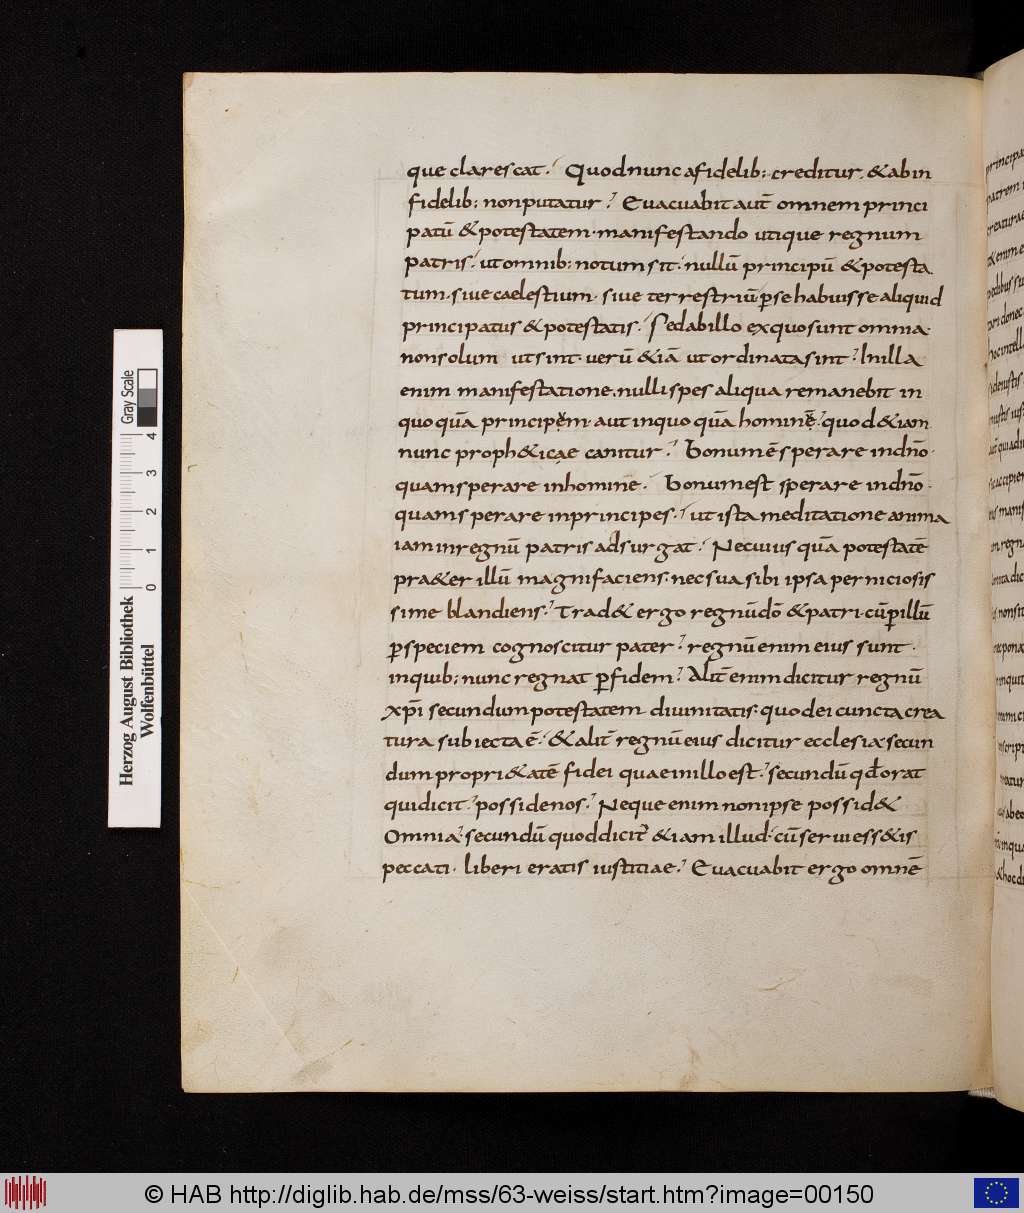 que clarescat. Quod nunc a fidelib; creditur, & abin
fidelib; non putatur? Euacuabit aut̄ omnem princi
patū & potestatem· manifestando utique regnum
patris· ut omnib; notum sit· nullū principū & potesta
tum· siue caelestium· siue terrestriū ꝑse habuisse aliquid
principatus & potestatis· Sed ab illo ex quo sunt omnia·
non solum ut sint· uerū & iā ut ordinata sint· In illa
enim manifestatione· nulli spes aliqua remanebit in
quoquā principem· aut in quoquā hominē· quod & iam
nunc proph&icae canitur· Bonum ē sperare in dn̄o·
quam sperare in homine· Bonum est sperare in dn̄o·
quam sperare in principes· ut ista meditatione anima
iam in regnū patris adsurgat· Nec uius quā potestatē
pra&er illū magnifaciens· nec sua sibi ipsa perniciosis
sime blandiens· Trad& ergo regnū dō & patri· cū ꝑ illū
ꝑ speciem cognoscitur pater· regnū enim eius sunt·
in quib; nunc regnat ꝑ fidem· Alit̄ enim dicitur regnū
xp̄i secundum potestatem diuinitatis· quo dei cuncta crea
tura subiecta ē· & alit̄ regnū eius dicitur ecclesia· secun
dum propri&atē fidei quae in illo est· secundū qđ orat
qui dicit· posside nos· Neque enim non ipse possid&
Omnia· secundū quod dicit̄ & iam illud· cū serui ess&is
peccati· liberi eratis iustitiae· Euacuabit ergo omnē
principa
patrem
creatura
& enim e
pedibus su
donec
hoc intell
iustis
aut̄ qui adi
accipien
manif
regna
dic
non sit
pona
inquit
scrip
& hoc d
Herzog August Bibliothek
Wolfenbüttel
0 1 2 3 4
Gray Scale
© HAB http://diglib.hab.de/mss/63-weiss/start.htm?image=00150